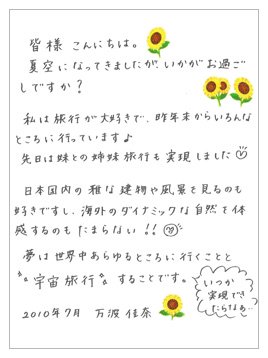 皆様 こんにちは。
夏空になってきましたが、いかがお過ご
しですか？
私は旅行が大好きで、昨年末からいろんな
ところに行っています♪
先日は妹との姉妹旅行も実現しました♡
日本国内の雅な建物や風景を見るのも
好きですし、海外のダイナミックな自然を体
感するのもたまらない!!♡
夢は世界中あらゆるところに行くことと
"宇宙旅行"することです。
いつか
実現でき
たらなぁ…
2010年7月 万波 佳奈